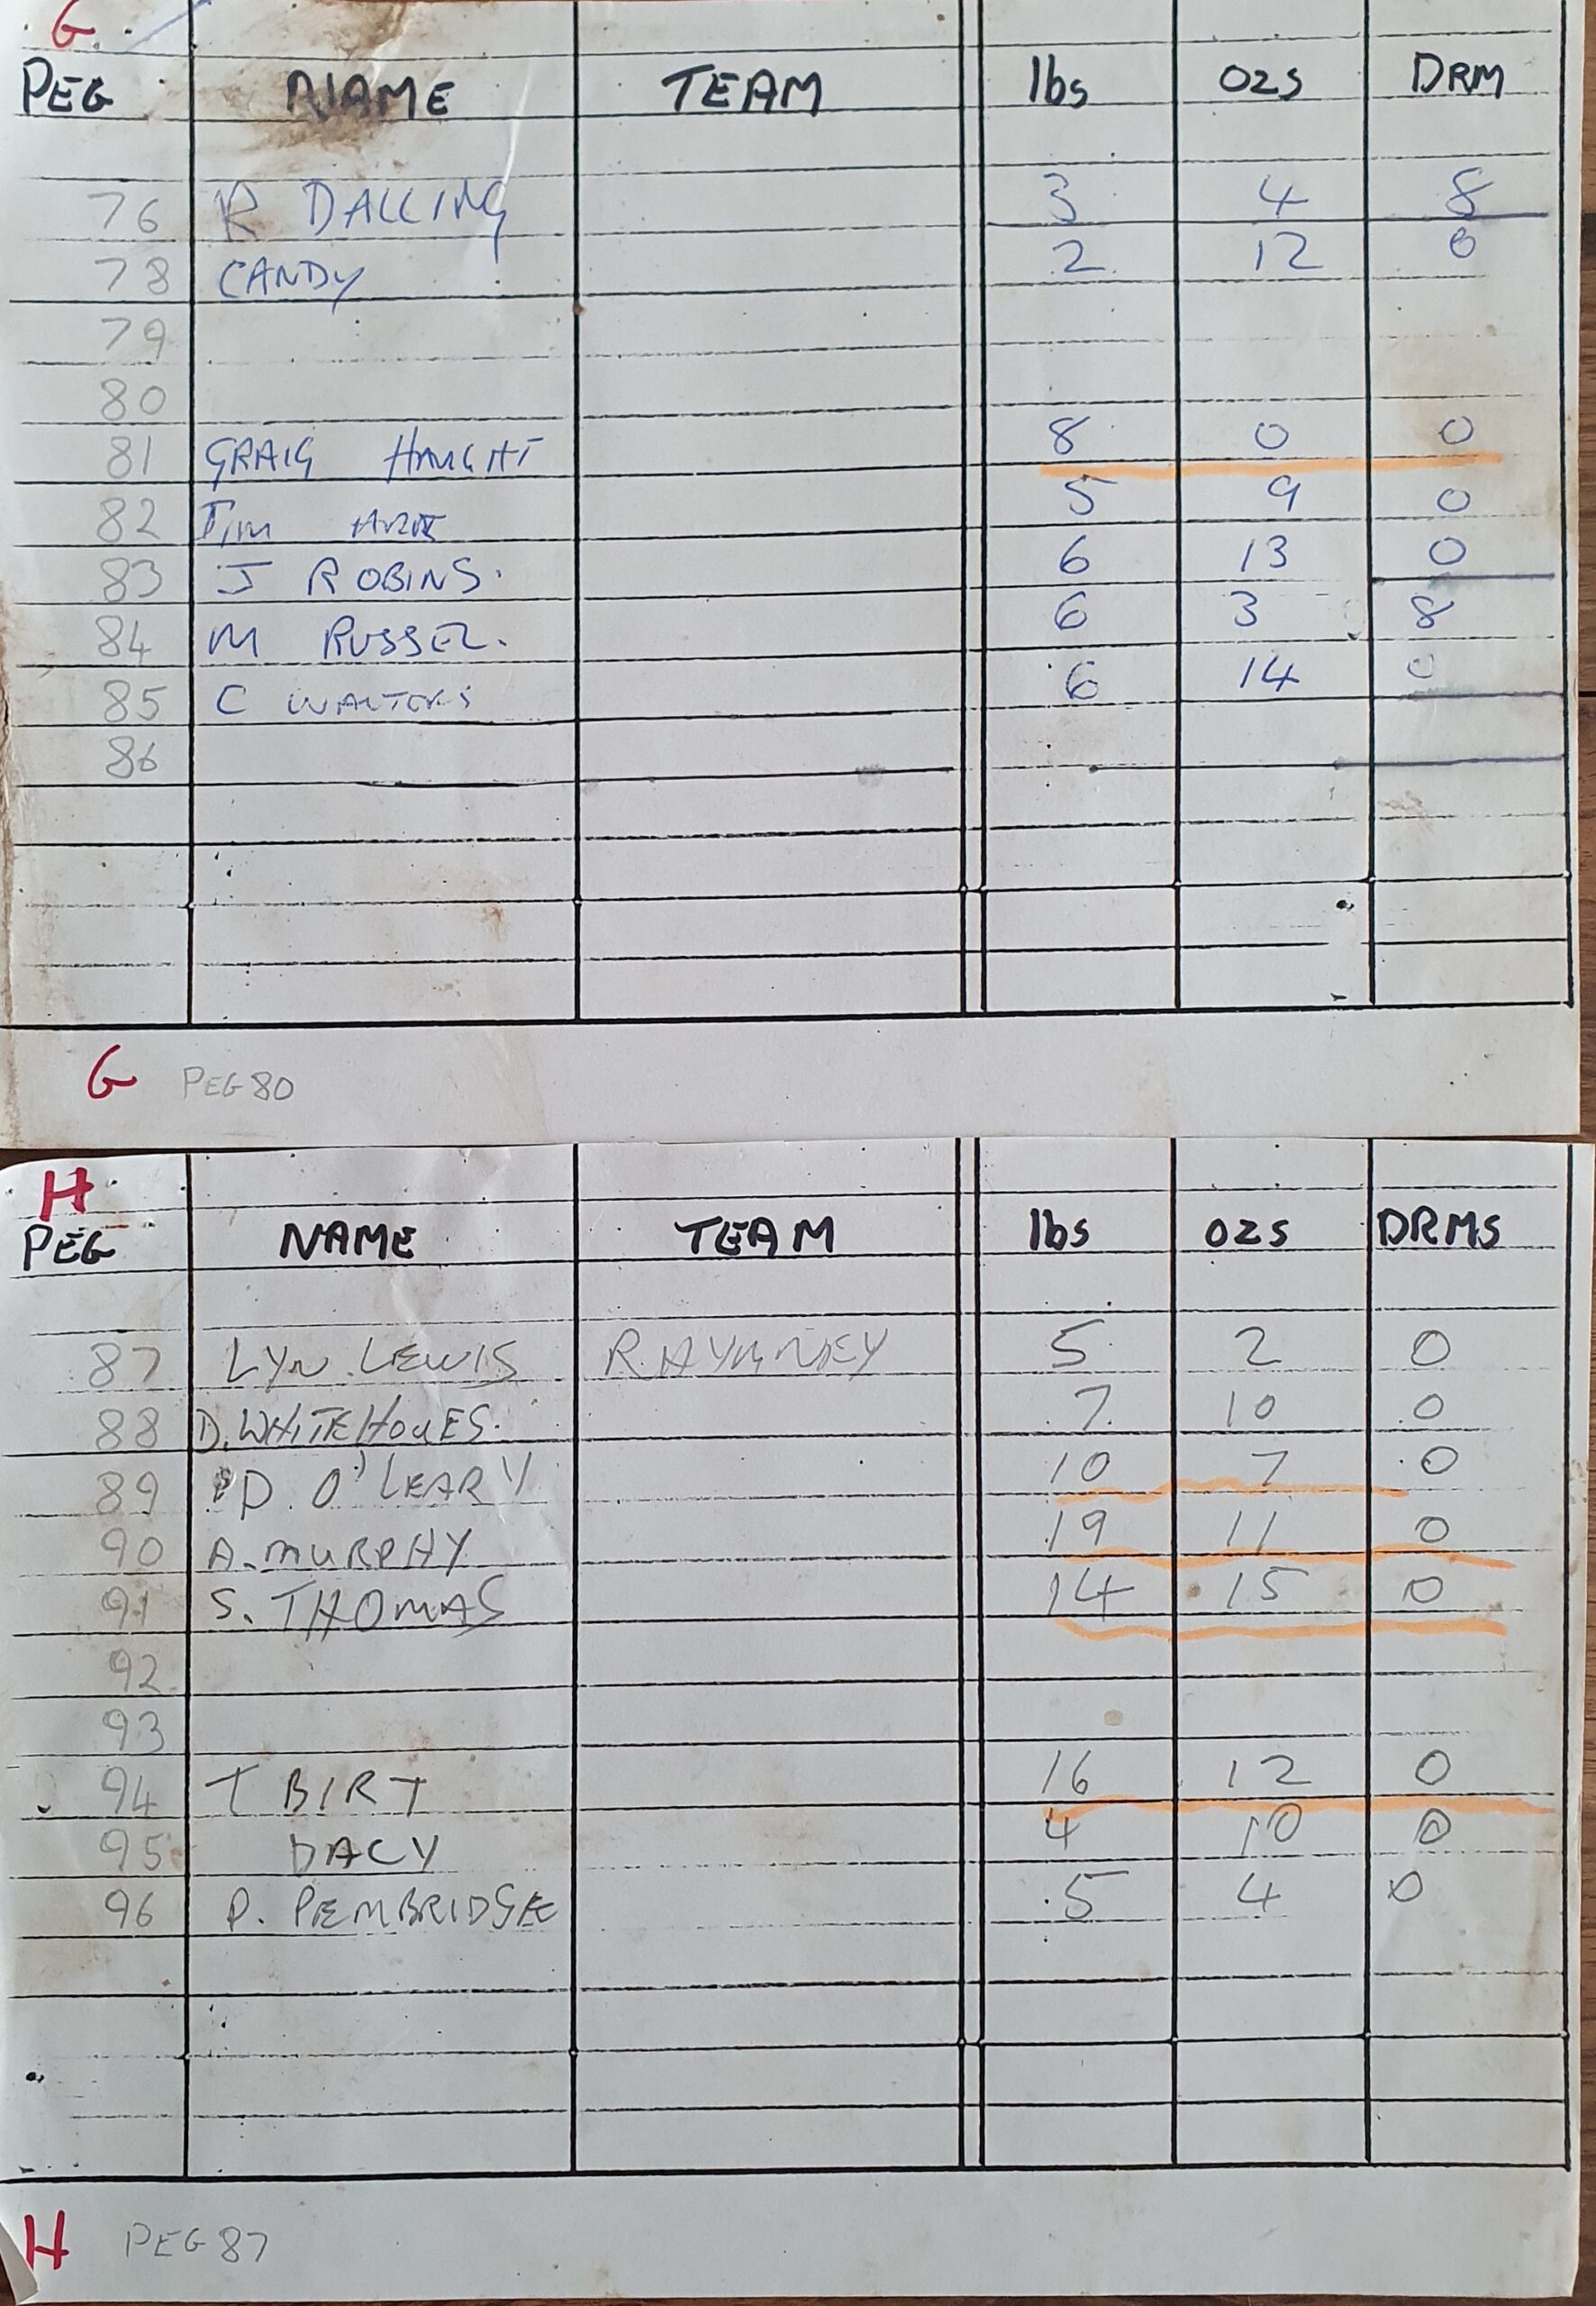 G.
PEG NAME TEAM lbs ozs DRM
76 R DALLING 3 4 8
78 CANDY 2 12 0
79
80
81 GRAIG HAUGHT 8 0 0
82 Tim 5 9 0
83 J ROBINS. 6 13 0
84 M RUSSEL. 6 3 8
85 C WALTERS 6 14 0
86
G PEG 80
H
PEG NAME TEAM lbs ozs DRMS
87 LYN LEWIS 5 2 0
88 D. WHITEHOUES. 7 10 0
89 D. O'LEARY 10 7 0
90 A. MURPHY 19 11 0
91 S. THOMAS 14 15 0
92
93
94 T BIRT 16 12 0
95 DACY 4 10 0
96 P. PEMBRIDGE 5 4 0
H PEG 87